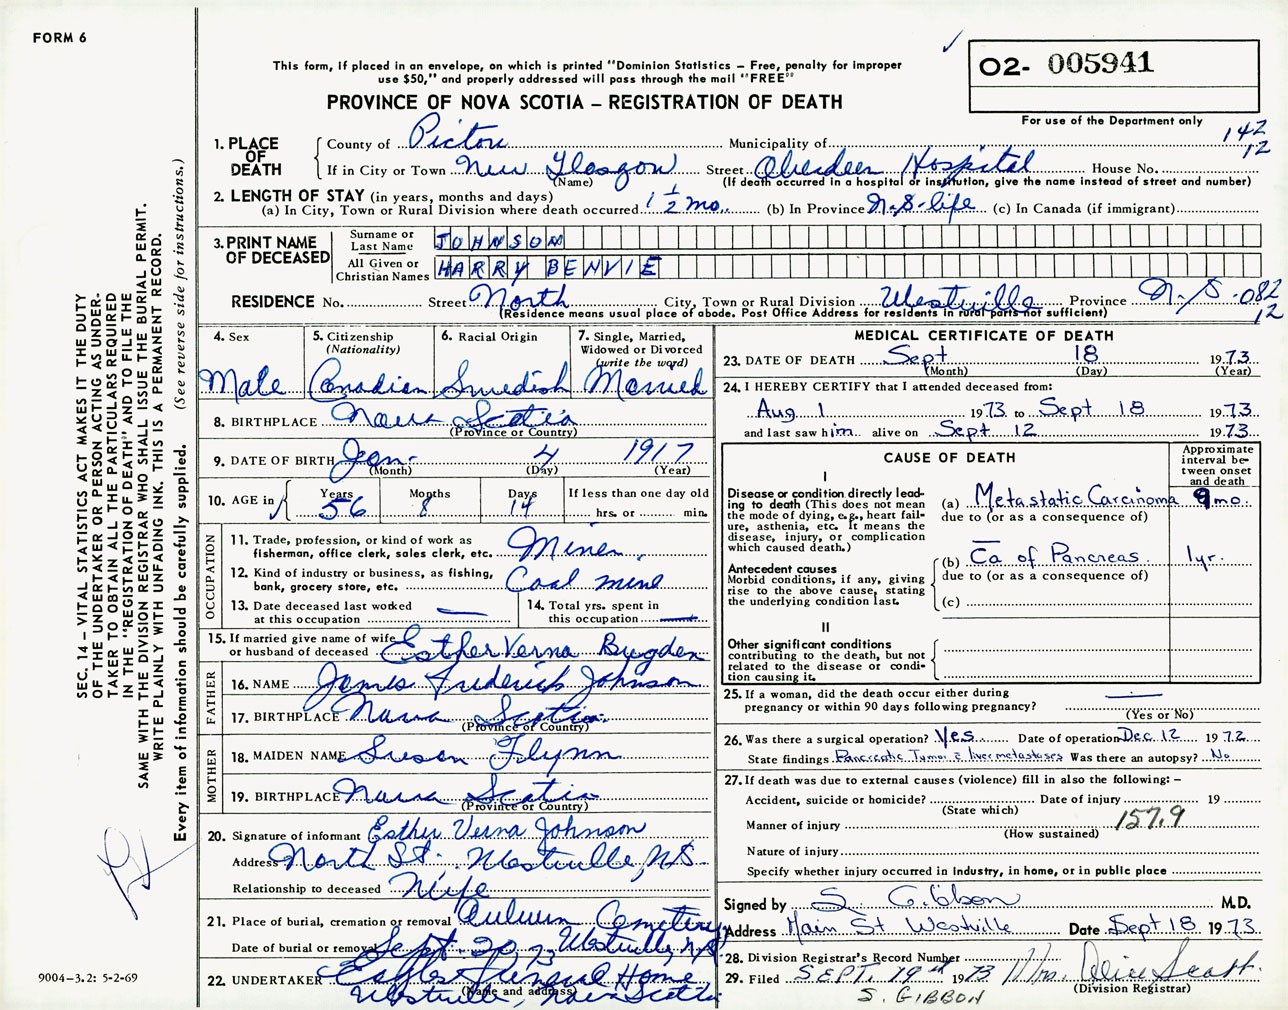 FORM 6
This form, if placed in an envelope, on which is printed "Dominion Statistics – Free, penalty for improper
use $50," and properly addressed will pass through the mail "FREE"
PROVINCE OF NOVA SCOTIA – REGISTRATION OF DEATH
O2- 005941
For use of the Department only
142
12
1. PLACE OF DEATH
County of Pictou Municipality of
If in City or Town New Glasgow Street Aberdeen Hospital House No.
(Name) (If death occurred in a hospital or institution, give the name instead of street and number)
2. LENGTH OF STAY (in years, months and days)
(a) In City, Town or Rural Division where death occurred 1 1/2 mo. (b) In Province N.S-life (c) In Canada (if immigrant)
3. PRINT NAME OF DECEASED
Surname or Last Name JOHNSON
All Given or Christian Names HARRY BENVIE
RESIDENCE No. Street North City, Town or Rural Division Westville Province N.S. 082
12
(Residence means usual place of abode. Post Office Address for residents in rural parts not sufficient)
4. Sex
Male
5. Citizenship
(Nationality)
Canadian
6. Racial Origin
Swedish
7. Single, Married,
Widowed or Divorced
(write the word)
Married
8. BIRTHPLACE Nova Scotia
(Province or Country)
9. DATE OF BIRTH Jan. 4 1917
(Month) (Day) (Year)
10. AGE in Years 56 Months 8 Days 14 If less than one day old
hrs. or min.
OCCUPATION
11. Trade, profession, or kind of work as
fisherman, office clerk, sales clerk, etc. Miner.
12. Kind of industry or business, as fishing,
bank, grocery store, etc. Coal mine
13. Date deceased last worked
at this occupation —
14. Total yrs. spent in
this occupation —
15. If married give name of wife
or husband of deceased Esther Verna Bugden
FATHER
16. NAME James Frederick Johnson
17. BIRTHPLACE Nova Scotia.
(Province or Country)
MOTHER
18. MAIDEN NAME Susan Flynn
19. BIRTHPLACE Nova Scotia
(Province or Country)
20. Signature of informant Esther Verna Johnson
Address North St. Westville, N.S.
Relationship to deceased Wife
21. Place of burial, cremation or removal Auburn Cemetery
Date of burial or removal Sept. 20, 73 Westville, N.S.
22. UNDERTAKER Eagles Funeral Home
(Name and address)
Westville, Nova Scotia
MEDICAL CERTIFICATE OF DEATH
23. DATE OF DEATH Sept 18 1973
(Month) (Day) (Year)
24. I HEREBY CERTIFY that I attended deceased from:
Aug 1 1973 to Sept 18 1973
and last saw him alive on Sept 12 1973
CAUSE OF DEATH
Approximate
interval be-
tween onset
and death
I
Disease or condition directly lead-
ing to death (This does not mean
the mode of dying, e.g., heart fail-
ure, asthenia, etc. It means the
disease, injury, or complication
which caused death.)
(a) Metastatic Carcinoma 9 mo.
due to (or as a consequence of)
Antecedent causes
Morbid conditions, if any, giving
rise to the above cause, stating
the underlying condition last.
(b) Ca of Pancreas 1 yr.
due to (or as a consequence of)
(c)
II
Other significant conditions
contributing to the death, but not
related to the disease or condi-
tion causing it.
25. If a woman, did the death occur either during
pregnancy or within 90 days following pregnancy? —
(Yes or No)
26. Was there a surgical operation? Yes Date of operation Dec 12 1972
State findings Pancreatic Tumor c̄ liver metastases Was there an autopsy? No
27. If death was due to external causes (violence) fill in also the following: –
Accident, suicide or homicide? Date of injury 19
(State which)
Manner of injury 157.9
(How sustained)
Nature of injury
Specify whether injury occurred in industry, in home, or in public place
Signed by S. Gibbon M.D.
Address Main St Westville Date Sept 18 1973
28. Division Registrar's Record Number
29. Filed SEPT. 19th 1973 Mrs. Alice Scott.
(Division Registrar)
S. GIBBON
SEC. 14 – VITAL STATISTICS ACT MAKES IT THE DUTY
OF THE UNDERTAKER OR PERSON ACTING AS UNDER-
TAKER TO OBTAIN ALL THE PARTICULARS REQUIRED
IN THE "REGISTRATION OF DEATH" AND TO FILE THE
SAME WITH THE DIVISION REGISTRAR WHO SHALL ISSUE THE BURIAL PERMIT.
WRITE PLAINLY WITH UNFADING INK. THIS IS A PERMANENT RECORD.
Every item of information should be carefully supplied. (See reverse side for instructions.)
9004–3.2: 5-2-69